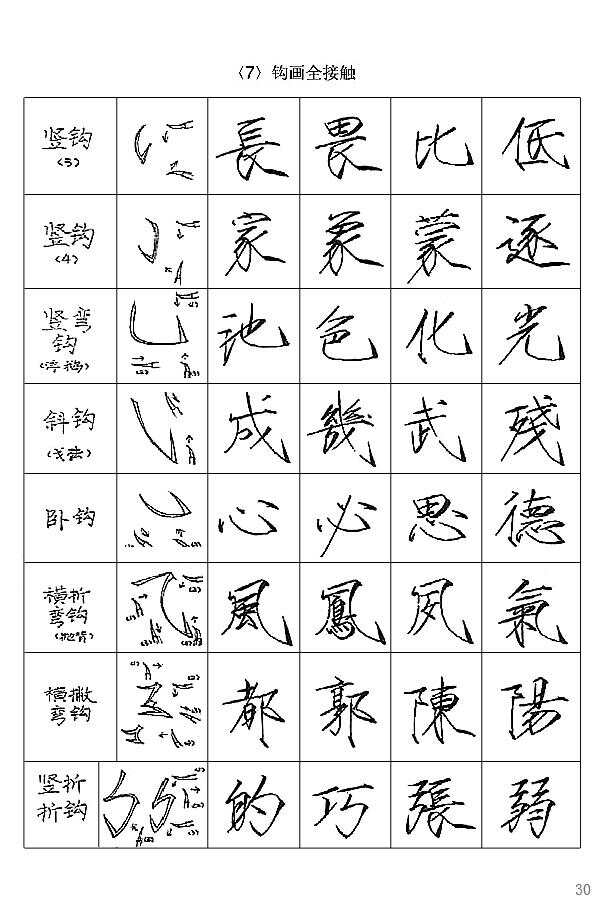 〈7〉钩画全接触
竖钩
〈3〉
長 畏 比 低
竖钩
〈4〉
家 象 蒙 逐
竖弯
钩
〈浮鹅〉
池 色 化 光
斜钩
〈戈法〉
成 幾 武 残
卧钩
心 必 思 德
横折
弯钩
〈抛背〉
風 鳳 夙 氣
横撇
弯钩
都 郭 陳 陽
竖折
折钩
的 巧 張 弱
30